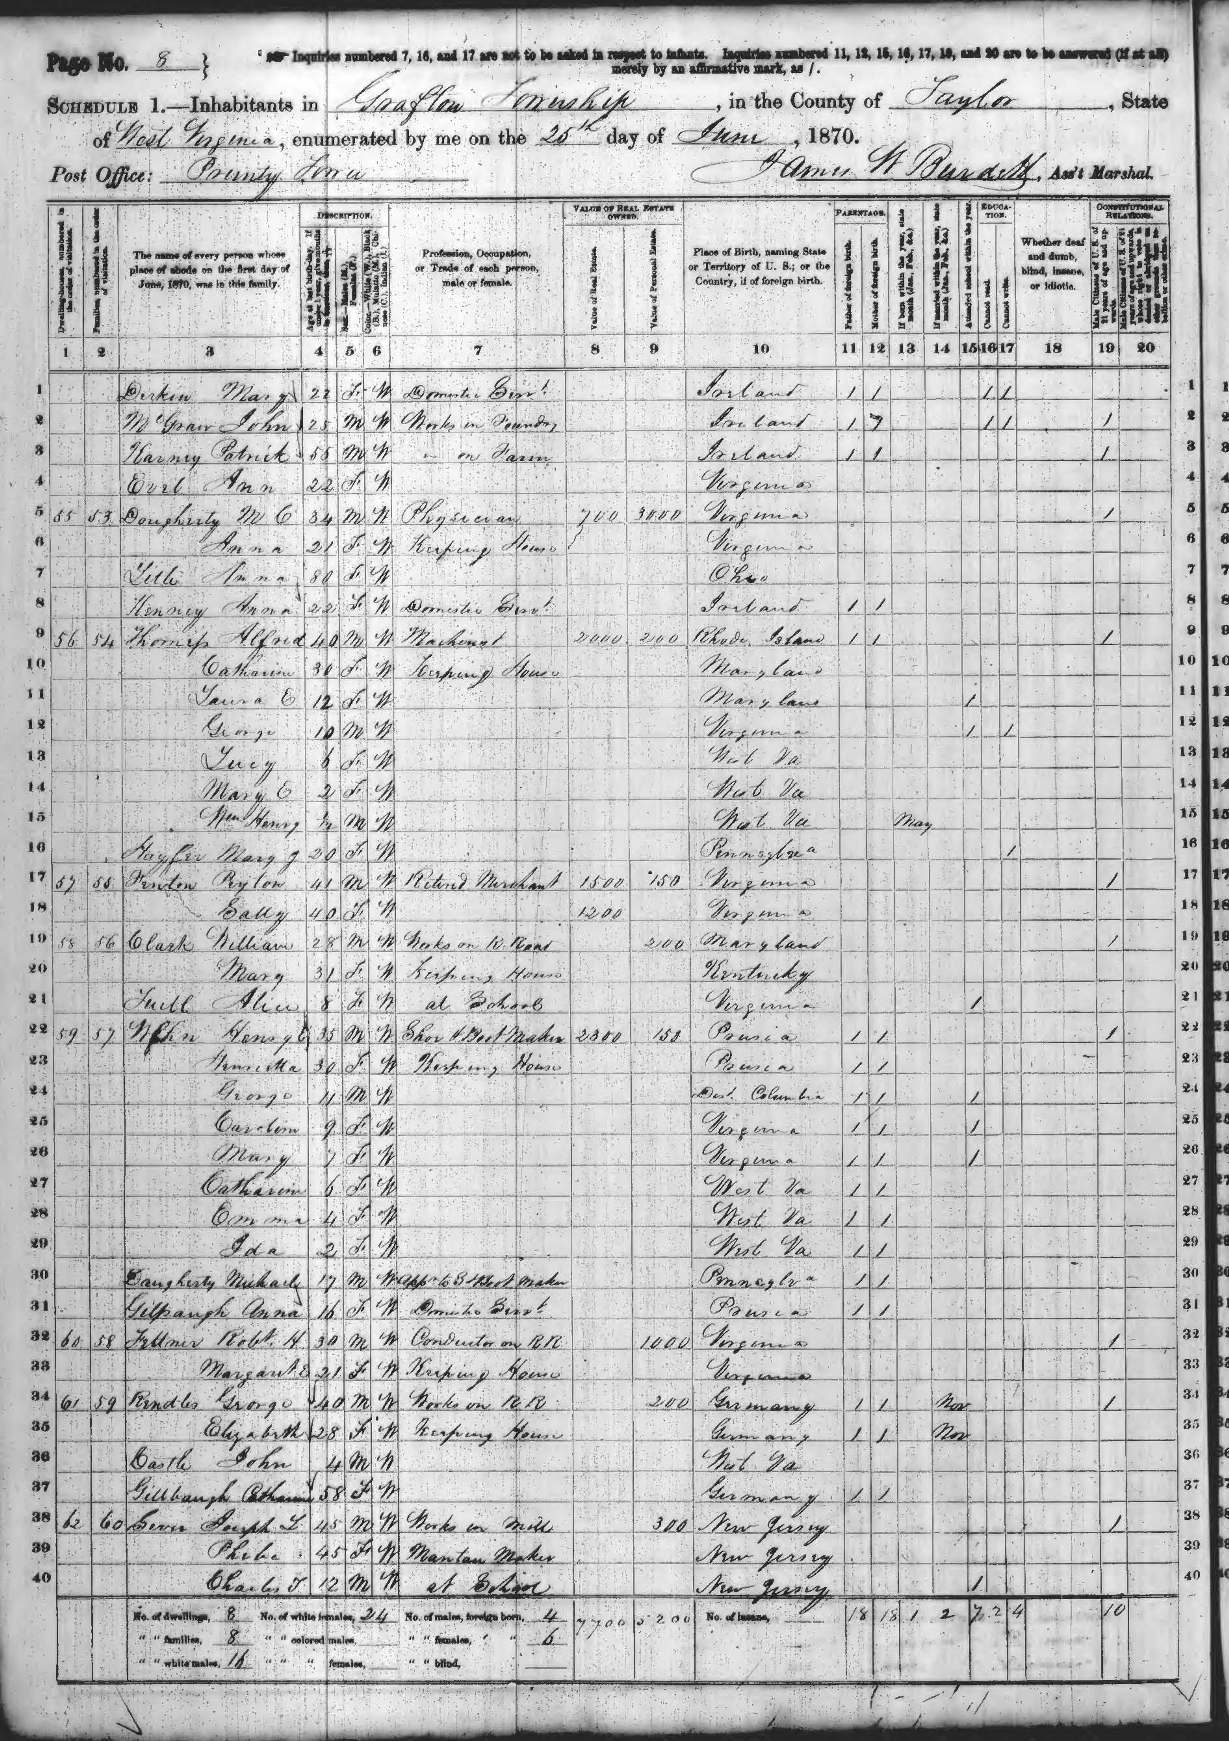 Page No. 8 }
Inquiries numbered 7, 16, and 17 are not to be asked in respect to infants. Inquiries numbered 11, 12, 15, 16, 17, 19, and 20 are to be answered (if at all)
merely by an affirmative mark, as /.
SCHEDULE 1.—Inhabitants in Grafton Township, in the County of Taylor, State
of West Virginia, enumerated by me on the 25th day of June, 1870.
Post Office: Prunty Town James W Burdett, Ass't Marshal.
Dwelling-houses, numbered in the order of visitation. Families, numbered in the order of visitation. The name of every person whose place of abode on the first day of June, 1870, was in this family. DESCRIPTION. Profession, Occupation, or Trade of each person, male or female. VALUE OF REAL ESTATE OWNED. Value of Real Estate. Value of Personal Estate. Place of Birth, naming State or Territory of U. S.; or the Country, if of foreign birth. PARENTAGE. Father of foreign birth. Mother of foreign birth. If born within the year, state month (Jan., Feb., &c.) If married within the year, state month (Jan., Feb., &c.) EDUCATION. Attended school within the year. Cannot read. Cannot write. Whether deaf and dumb, blind, insane, or idiotic. CONSTITUTIONAL RELATIONS.
1 2 3 4 5 6 7 8 9 10 11 12 13 14 15 16 17 18 19 20
1 Mary 22 F W Domestic Servt Ireland / / / / 1
2 McGraw John 25 M W Works in Foundry Ireland / / / / 2
3 Harney Patrick 55 M W " on Farm Ireland / / / 3
4 Ann 22 F W Virginia 4
5 55 53 Dougherty M C 34 M W Physician 700 3000 Virginia / 5
6 Anna 21 F W Keeping House Virginia 6
7 Anna 80 F W Ohio 7
8 Kenney Anna 22 F W Domestic Servt Ireland / / 8
9 56 54 Alfred 40 M W Machinest 2000 200 Rhode Island / / / 9
10 Catharine 30 F W Keeping House Maryland 10
11 Laura E 12 F W Maryland / 11
12 George 10 M W Virginia / / 12
13 Lucy 6 F W West Va 13
14 Mary E 2 F W West Va 14
15 Wm Henry M W West Va May 15
16 Mary J 20 F W Pennsylva / 16
17 57 55 Fenton 41 M W Retired Merchant 1500 150 Virginia / 17
18 Sally 40 F W 1200 Virginia 18
19 58 56 Clark William 28 M W Works on R. Road 200 Maryland / 19
20 Mary 31 F W Keeping House Kentucky 20
21 Alice 8 F W at School Virginia / 21
22 59 57 Henry C 35 M W Shoe & Boot Maker 2300 150 Prusia / / / 22
23 Henrietta 30 F W Keeping House Prusia / / 23
24 George 11 M W Dist. Columbia / / / 24
25 Caroline 9 F W Virginia / / / 25
26 Mary 7 F W Virginia / / / 26
27 Catharine 6 F W West Va / / 27
28 Emma 4 F W West Va / / 28
29 Ida 2 F W West Va / / 29
30 Daugherty Michael 17 M W App to S & Boot Maker Pennsylva / / 30
31 Gilpaugh Anna 16 F W Domestic Servt Prusia / / 31
32 60 58 Robt. H 30 M W Conductor on R R 1000 Virginia / 32
33 Margaret E 21 F W Keeping House Virginia 33
34 61 59 Rendles George 40 M W Works on R R 200 Germany / / Nov / 34
35 Elizabeth 28 F W Keeping House Germany / / Nov 35
36 Castle John 4 M W West Va 36
37 Gillbaugh Catharine 58 F W Germany / / 37
38 62 60 Joseph L 45 M W Works in Mill 300 New Jersey / 38
39 Phebe 45 F W Mantau Maker New Jersey 39
40 Charles T 12 M W at School New Jersey / 40
No. of dwellings, 8 No. of white females, 24 No. of males, foreign born, 4 7700 5200 No. of insane, 18 18 1 2 7 2 4 10
" " families, 8 " " colored males, " " females, " " 6
" " white males, 16 " " " females, " " blind,